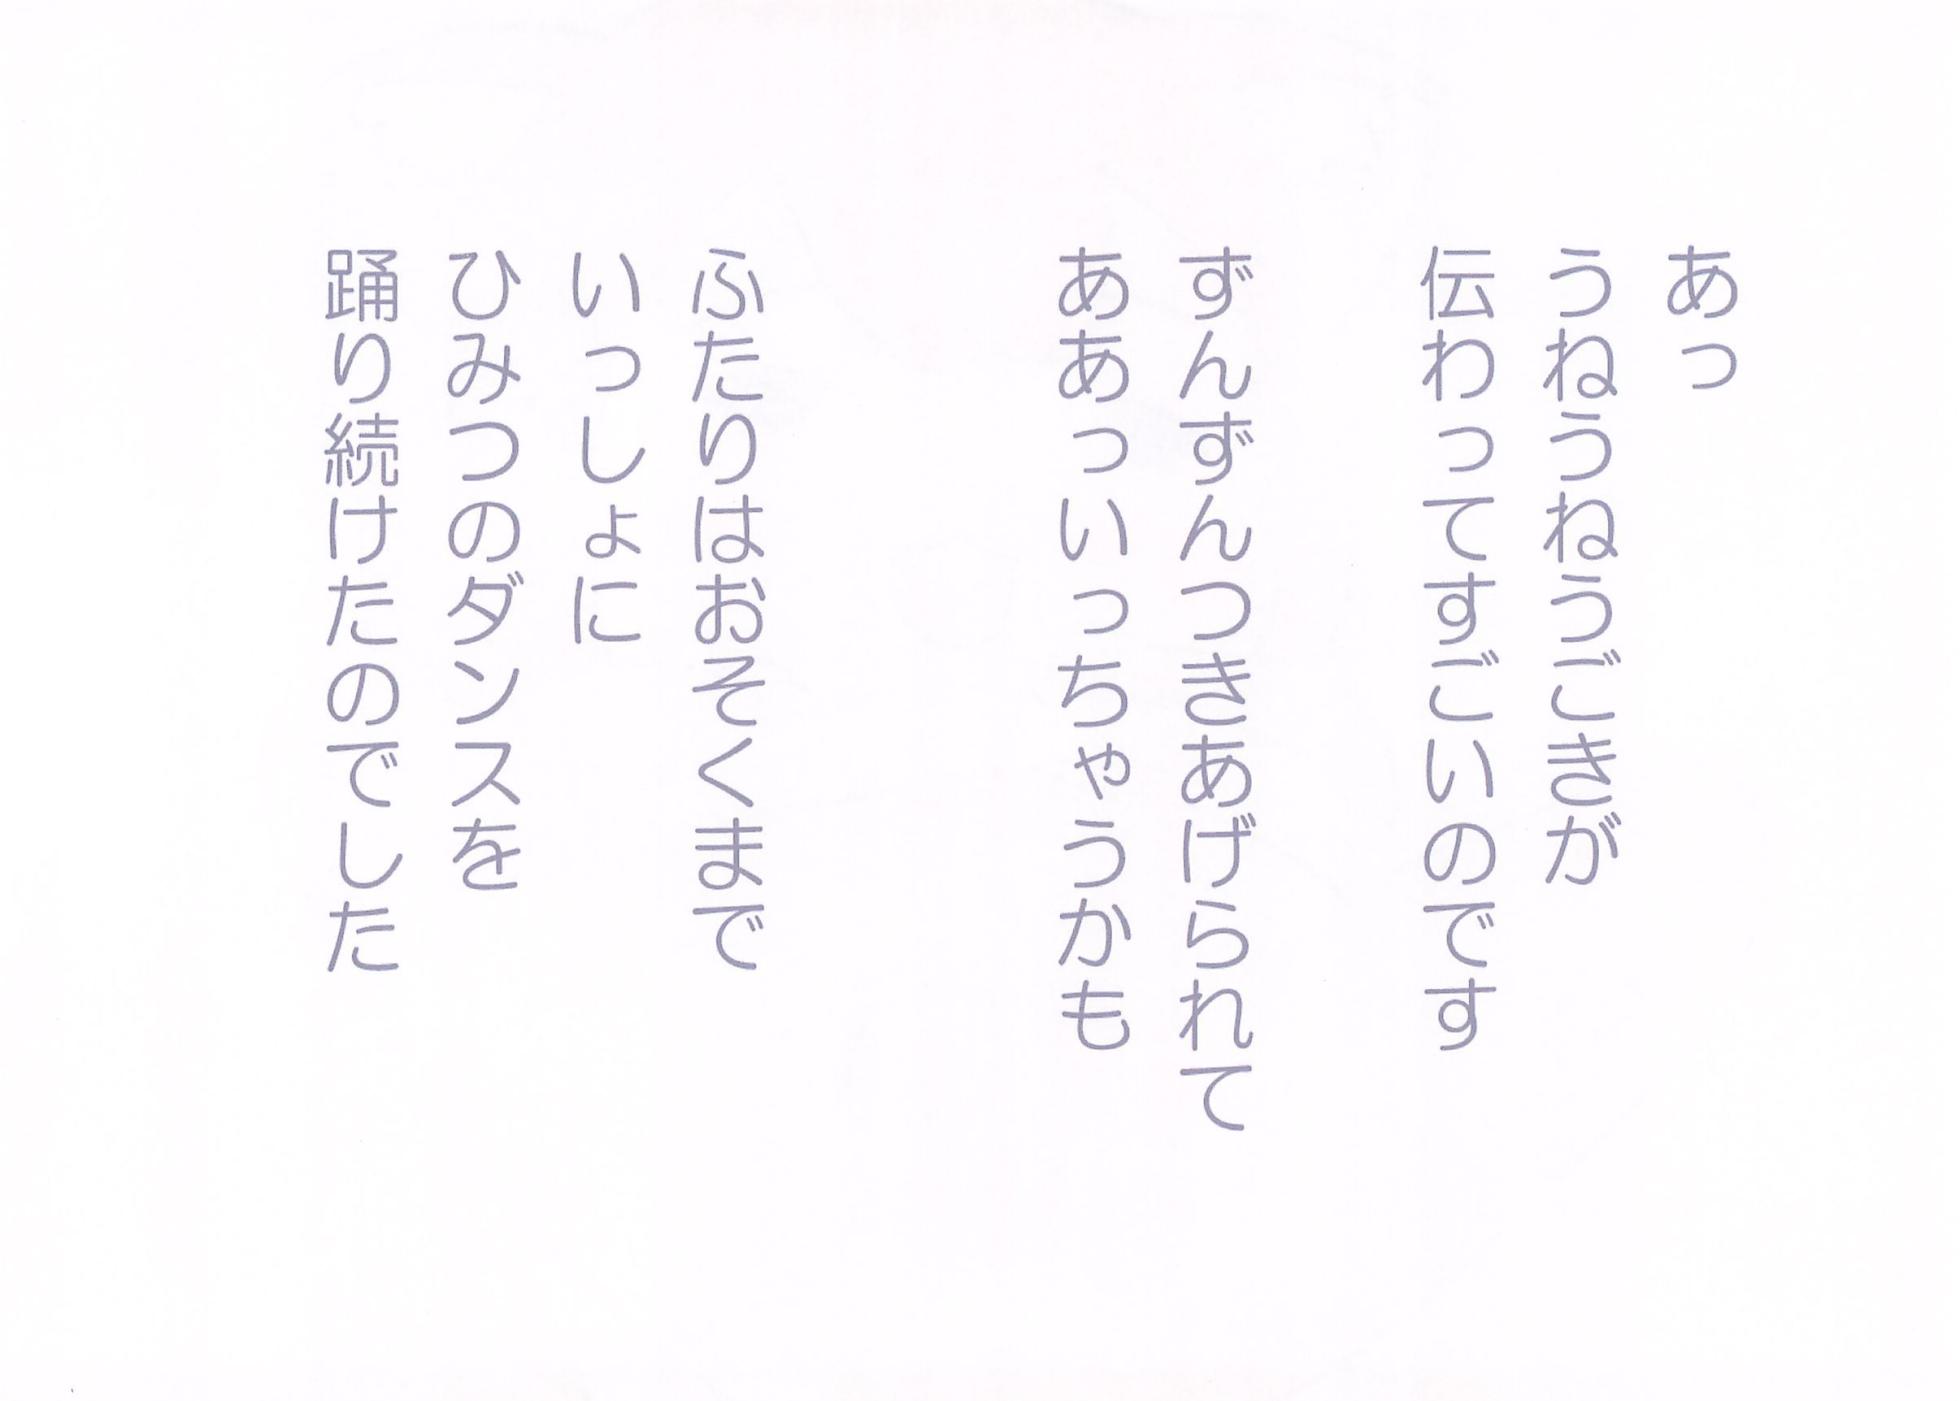 あっ
うねうねうごきが
伝わってすごいのです
ずんずんつきあげられて
ああっいっちゃうかも
ふたりはおそくまで
いっしょに
ひみつのダンスを
踊り続けたのでした